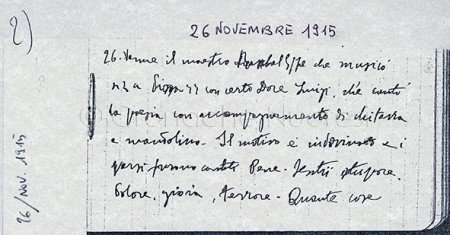 2)
26 NOVEMBRE 1915
26/NOV. 1915
26. Venne il maestro che musicò
concerto Dore Luigi, che cantò
la poesia con accompagnamento di chitarra
e mandolino. Il motivo è indovinato e i
versi furono cantati Bene. Sentii stupore,
dolore, gioia, terrore - Quante cose